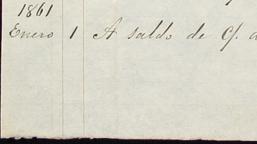 1861
Enero 1 A saldo de C/.